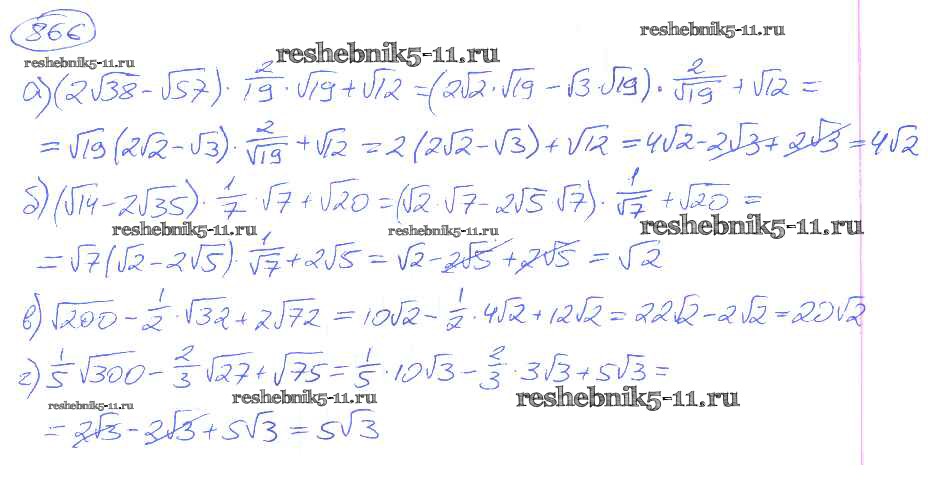 866
reshebnik5-11.ru
reshebnik5-11.ru
reshebnik5-11.ru
а) (2√38 - √57) · 2/19 · √19 + √12 = (2√2 · √19 - √3 · √19) · 2/√19 + √12 =
= √19 (2√2 - √3) · 2/√19 + √12 = 2 (2√2 - √3) + √12 = 4√2 - 2√3 + 2√3 = 4√2
б) (√14 - 2√35) · 1/7 · √7 + √20 = (√2 · √7 - 2√5 √7) · 1/√7 + √20 =
reshebnik5-11.ru
reshebnik5-11.ru
reshebnik5-11.ru
= √7 (√2 - 2√5) · 1/√7 + 2√5 = √2 - 2√5 + 2√5 = √2
в) √200 - 1/2 · √32 + 2√72 = 10√2 - 1/2 · 4√2 + 12√2 = 22√2 - 2√2 = 20√2
г) 1/5 √300 - 2/3 √27 + √75 = 1/5 · 10√3 - 2/3 · 3√3 + 5√3 =
reshebnik5-11.ru
reshebnik5-11.ru
reshebnik5-11.ru
= 2√3 - 2√3 + 5√3 = 5√3